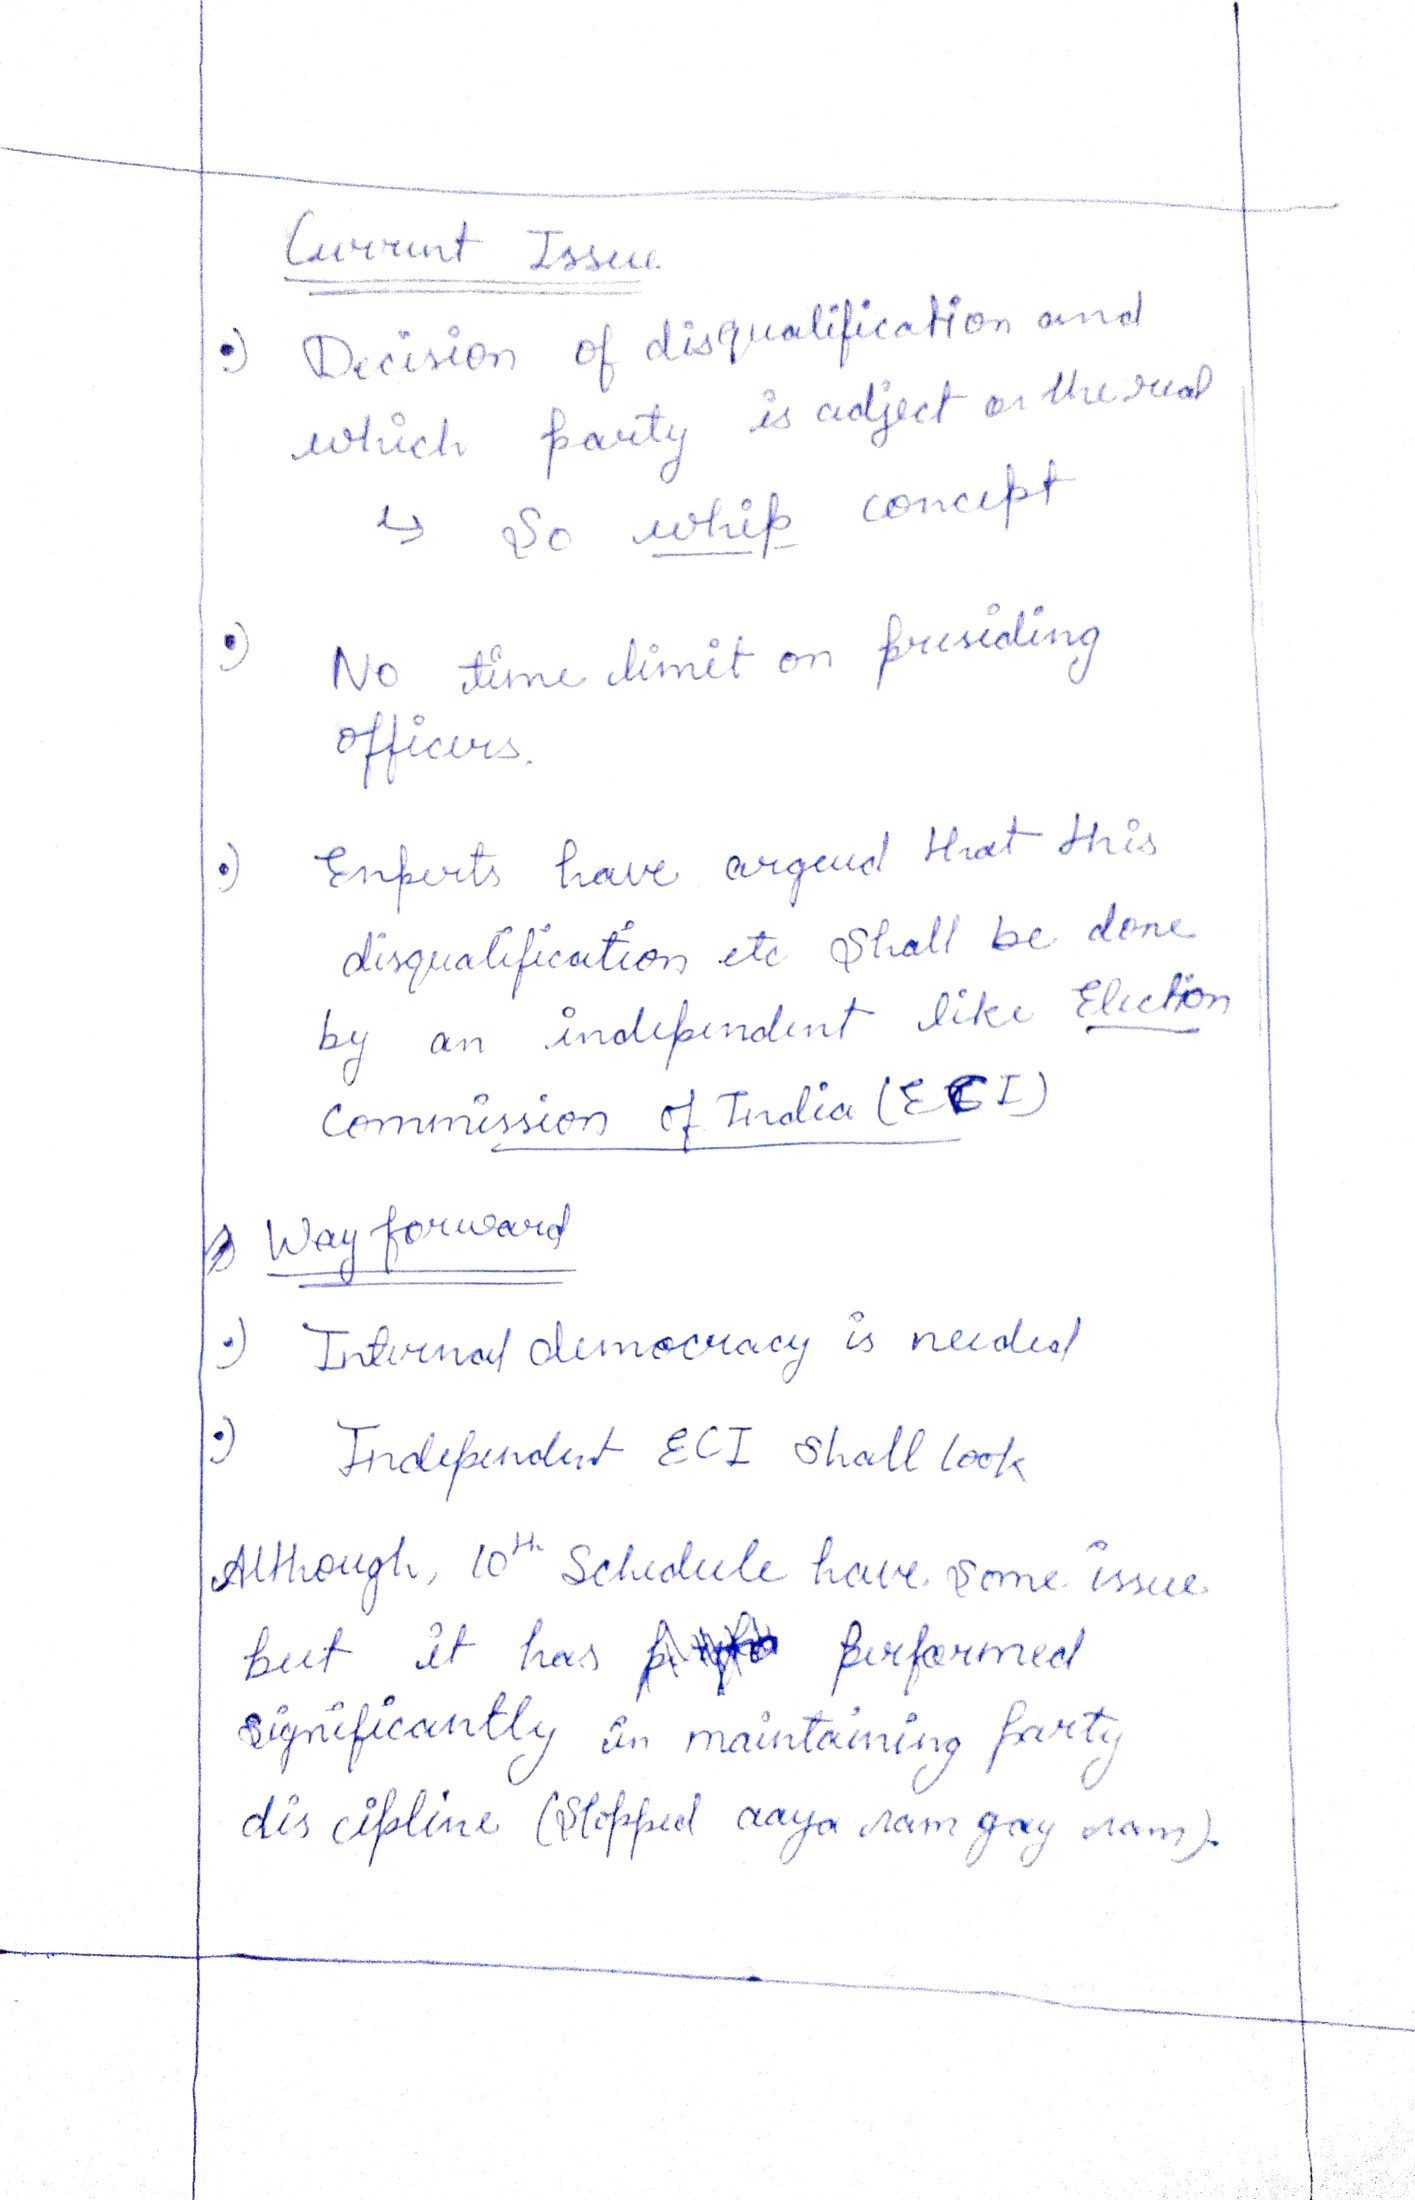 Current Issue
•) Decision of disqualification and
which party is adject or the real
↳ So whip concept
•) No time limit on presiding
officers.
•) Experts have argeud that this
disqualification etc shall be done
by an independent like Election
Commission of India (ECI)
Way forward
•) Internal democracy is needed
•) Independent ECI shall look
Although, 10th Schedule have some issue
but it has performed
significantly in maintaining party
discipline (Stopped aaya ram gay ram).